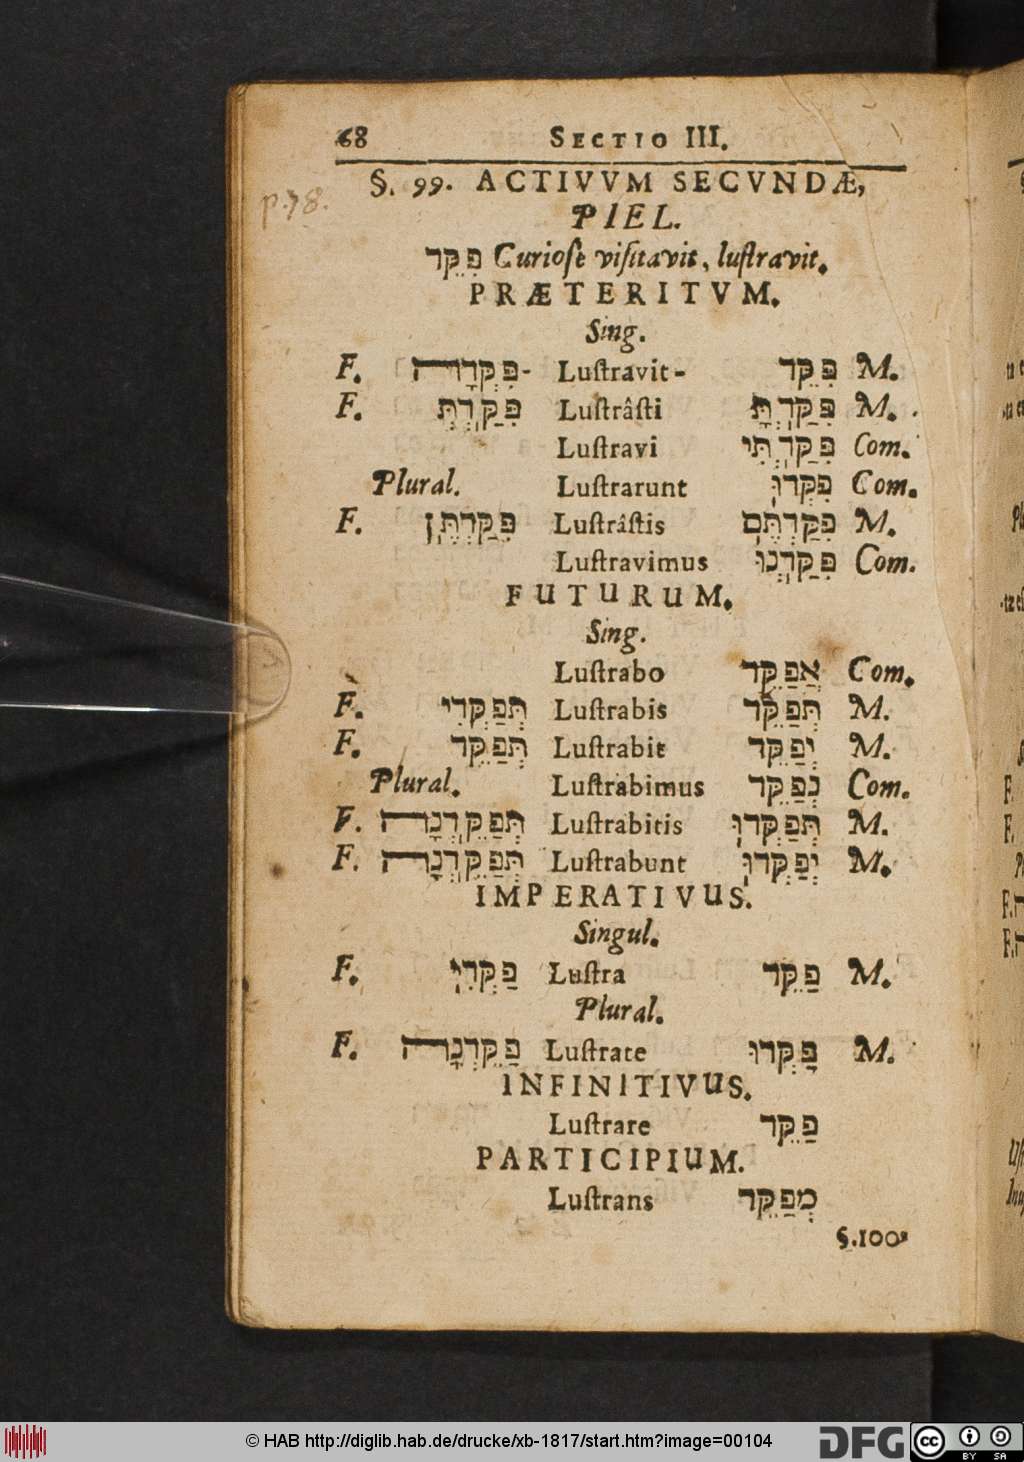 68 SECTIO III.
§. 99. ACTIVVM SECVNDÆ,
p. 78.
PIEL.
פִּקֵּד Curiosè visitavit, lustravit.
PRÆTERITVM.
Sing.
F. פִּקְּדָה- Lustravit- פִּקֵּד M.
F. פִּקַּדְתְּ Lustrâsti פִּקַּדְתָּ M.
Lustravi פִּקַּדְתִּי Com.
Plural. Lustrarunt פִּקְּדוּ Com.
F. פִּקַּדְתֶּן Lustrâstis פִּקַּדְתֶּם M.
Lustravimus פִּקַּדְנוּ Com.
FUTURUM.
Sing.
Lustrabo אֲפַקֵּד Com.
F. תְּפַקְּדִי Lustrabis תְּפַקֵּד M.
F. תְּפַקֵּד Lustrabit יְפַקֵּד M.
Plural. Lustrabimus נְפַקֵּד Com.
F. תְּפַקֵּדְנָה Lustrabitis תְּפַקְּדוּ M.
F. תְּפַקֵּדְנָה Lustrabunt יְפַקְּדוּ M.
IMPERATIVUS.
Singul.
F. פַּקְּדִי Lustra פַּקֵּד M.
Plural.
F. פַּקֵּדְנָה Lustrate פַּקְּדוּ M.
INFINITIVUS.
Lustrare פַּקֵּד
PARTICIPIUM.
Lustrans מְפַקֵּד
§.100.
© HAB http://diglib.hab.de/drucke/xb-1817/start.htm?image=00104
DFG
CC BY SA